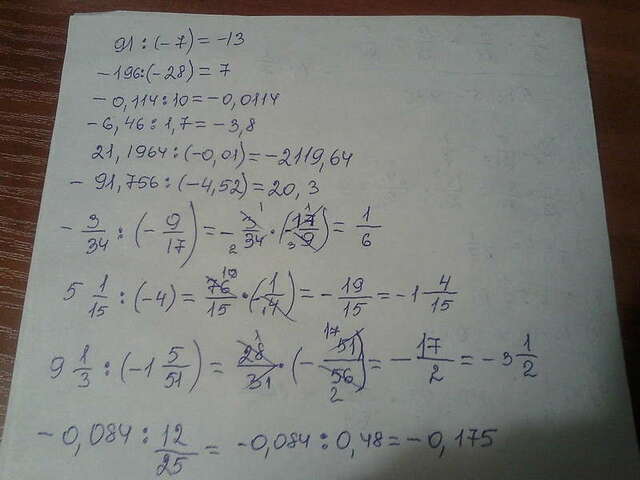 91 : (-7) = -13
-196:(-28) = 7
-0,114:10 = -0,0114
-6,46:1,7 = -3,8
21,1964:(-0,01) = -2119,64
-91,756:(-4,52) = 20,3
-3/34 : (-9/17) = -3/34 · (-17/9) = 1/6
5 1/15 : (-4) = 76/15 · (-1/4) = -19/15 = -1 4/15
9 1/3 : (-1 5/51) = 28/31 · (-51/56) = -17/2 = -3 1/2
-0,084 : 12/25 = -0,084 : 0,48 = -0,175